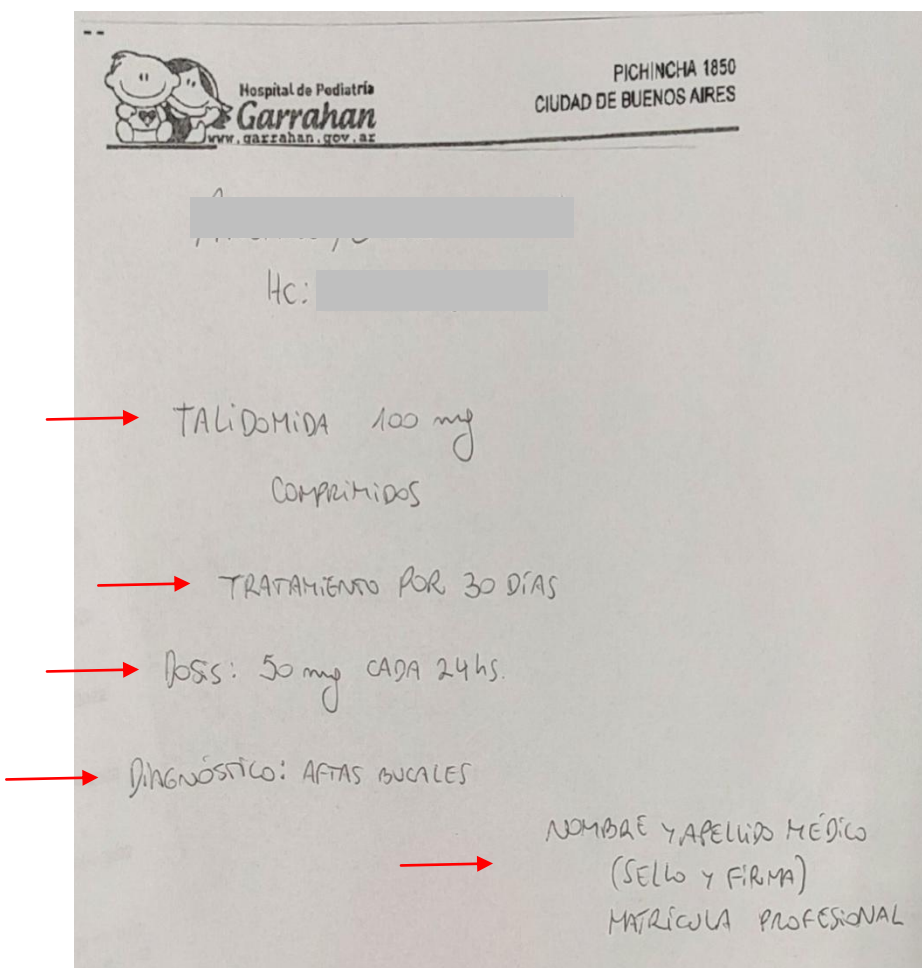 Hospital de Pediatría
Garrahan
www.garrahan.gov.ar
PICHINCHA 1850
CIUDAD DE BUENOS AIRES
HC:
TALIDOMIDA 100 mg
COMPRIMIDOS
TRATAMIENTO POR 30 DÍAS
DOSIS: 50 mg CADA 24hs.
DIAGNÓSTICO: AFTAS BUCALES
NOMBRE Y APELLIDO MÉDICO
(SELLO Y FIRMA)
MATRÍCULA PROFESIONAL